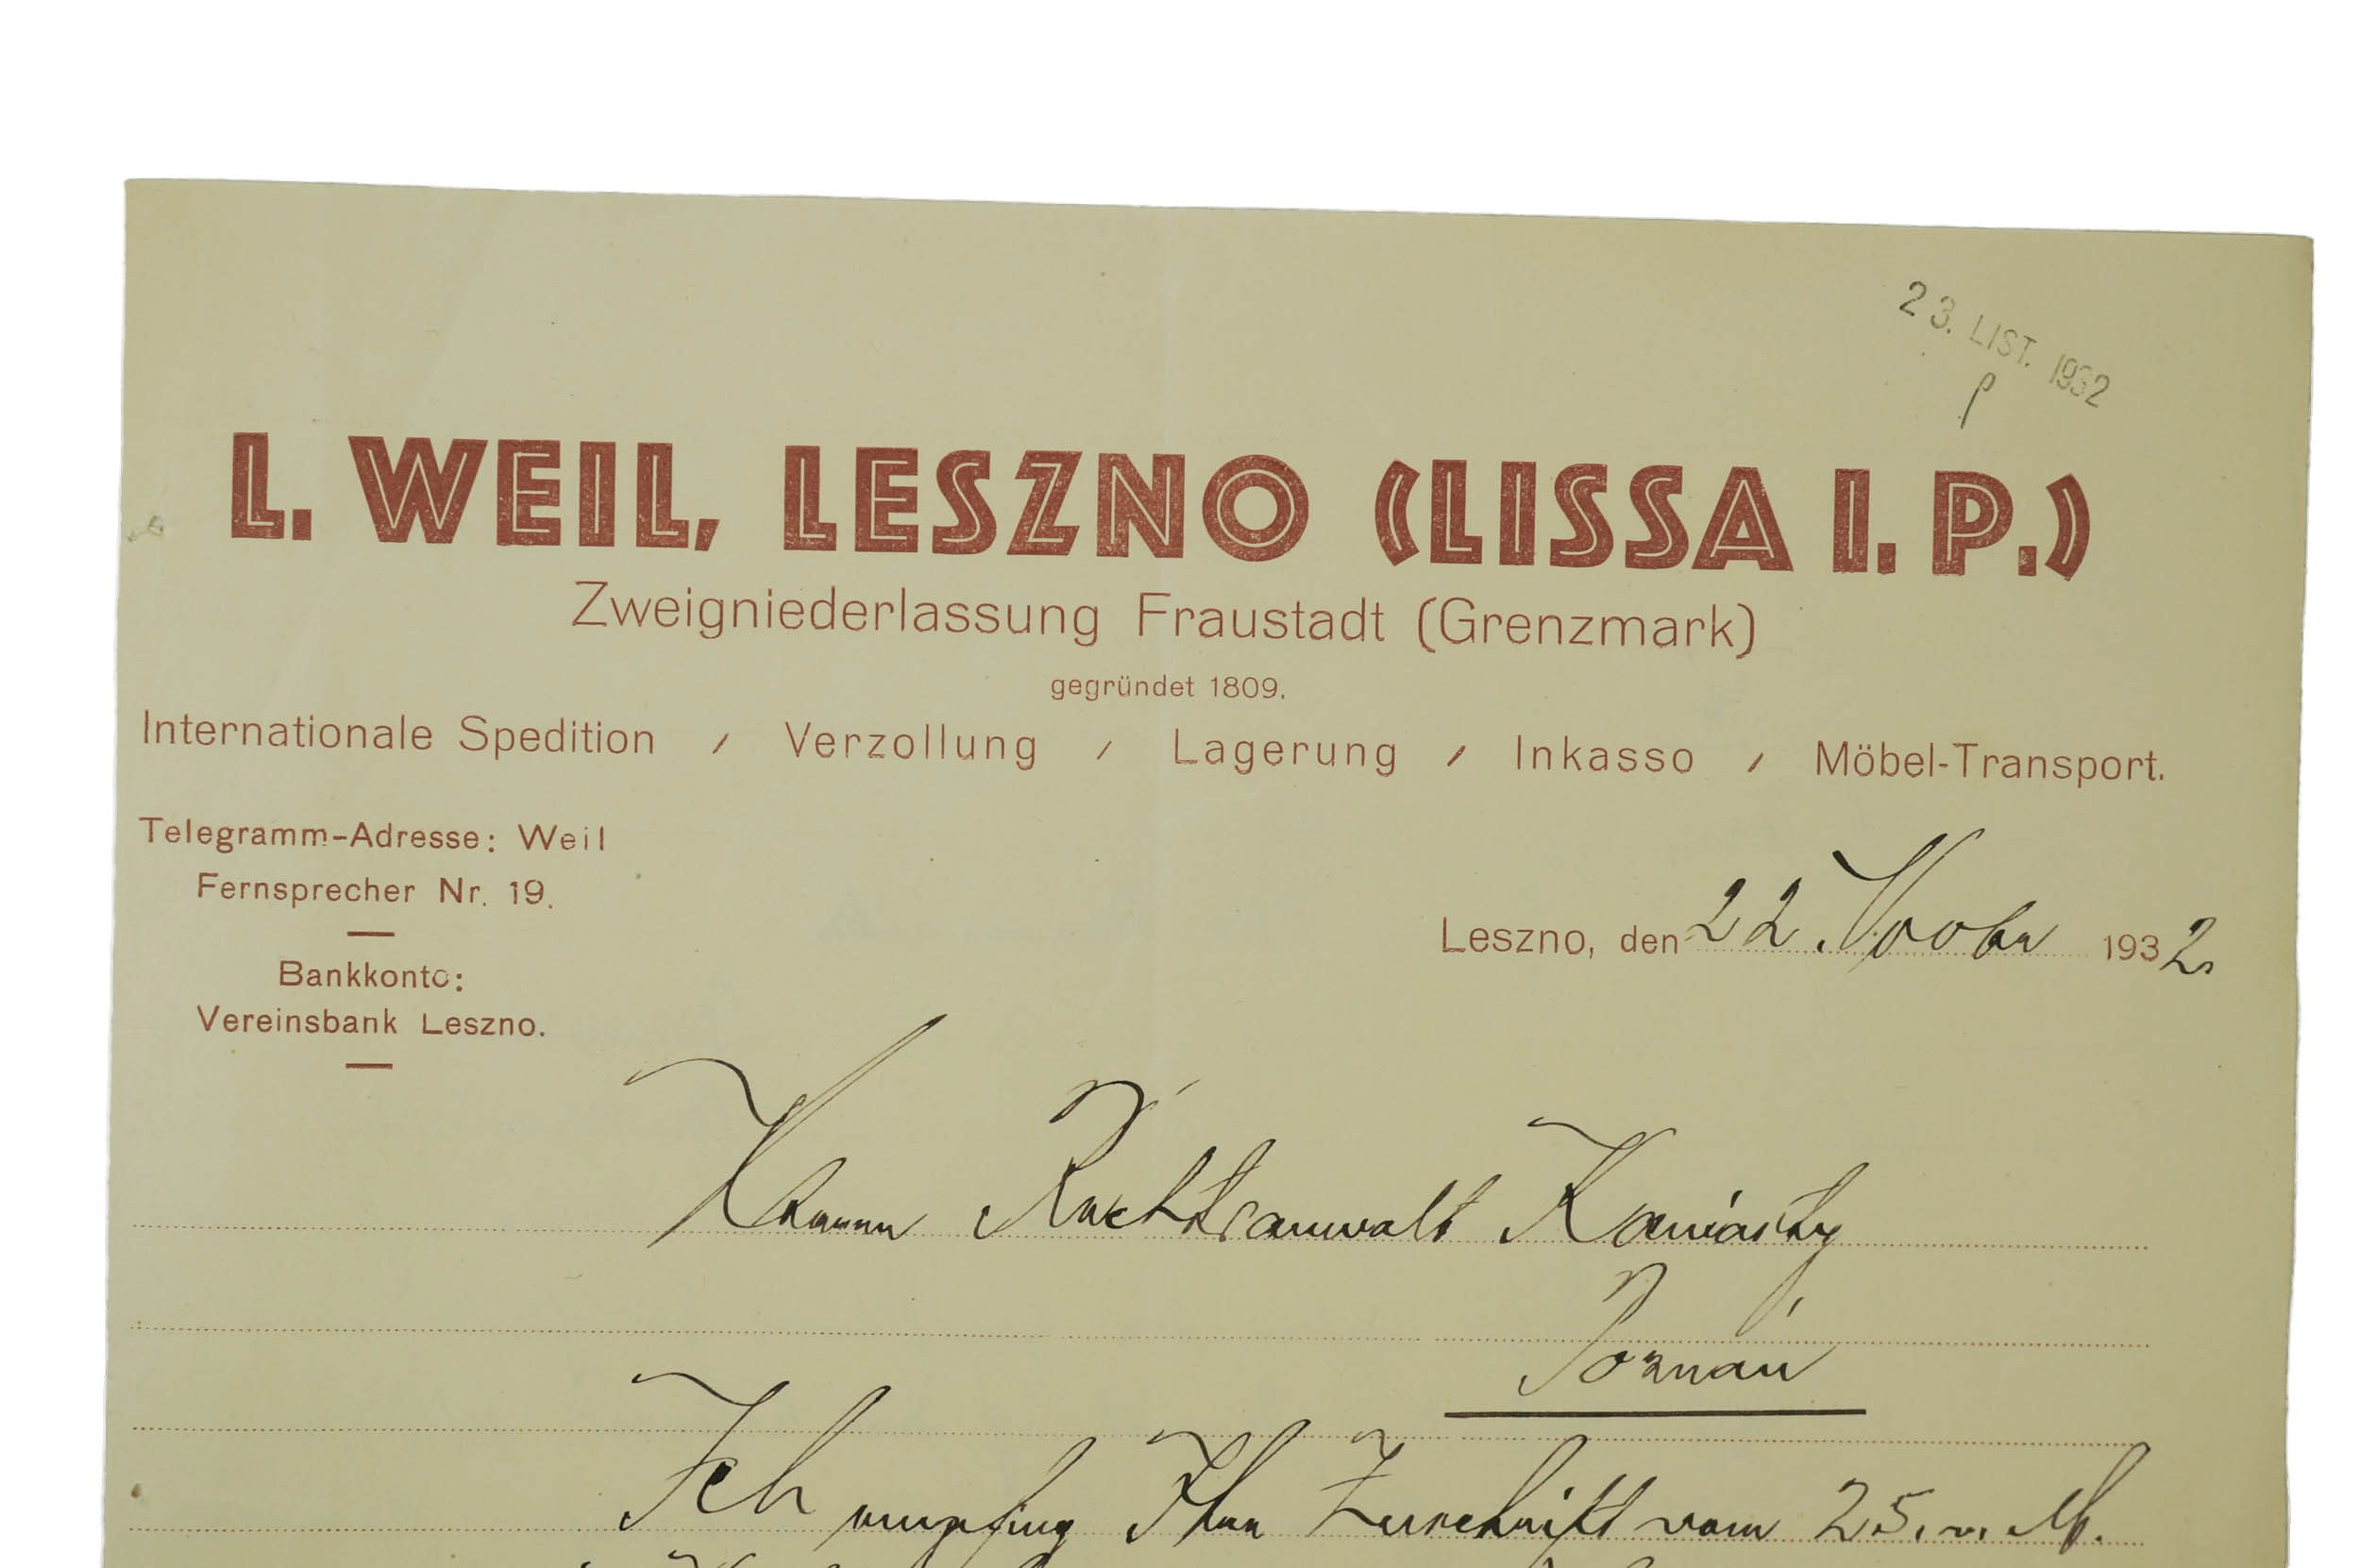 23. LIST. 1932
L. WEIL, LESZNO (LISSA I. P.)
Zweigniederlassung Fraustadt (Grenzmark)
gegründet 1809.
Internationale Spedition / Verzollung / Lagerung / Inkasso / Möbel-Transport.
Telegramm-Adresse: Weil
Fernsprecher Nr. 19.
Leszno, den 22. Novbr 1932
Bankkonto:
Vereinsbank Leszno.
Herrn Rechtsanwalt
Poznań
Ich empfing Ihre Zuschrift vom 25. v. M.